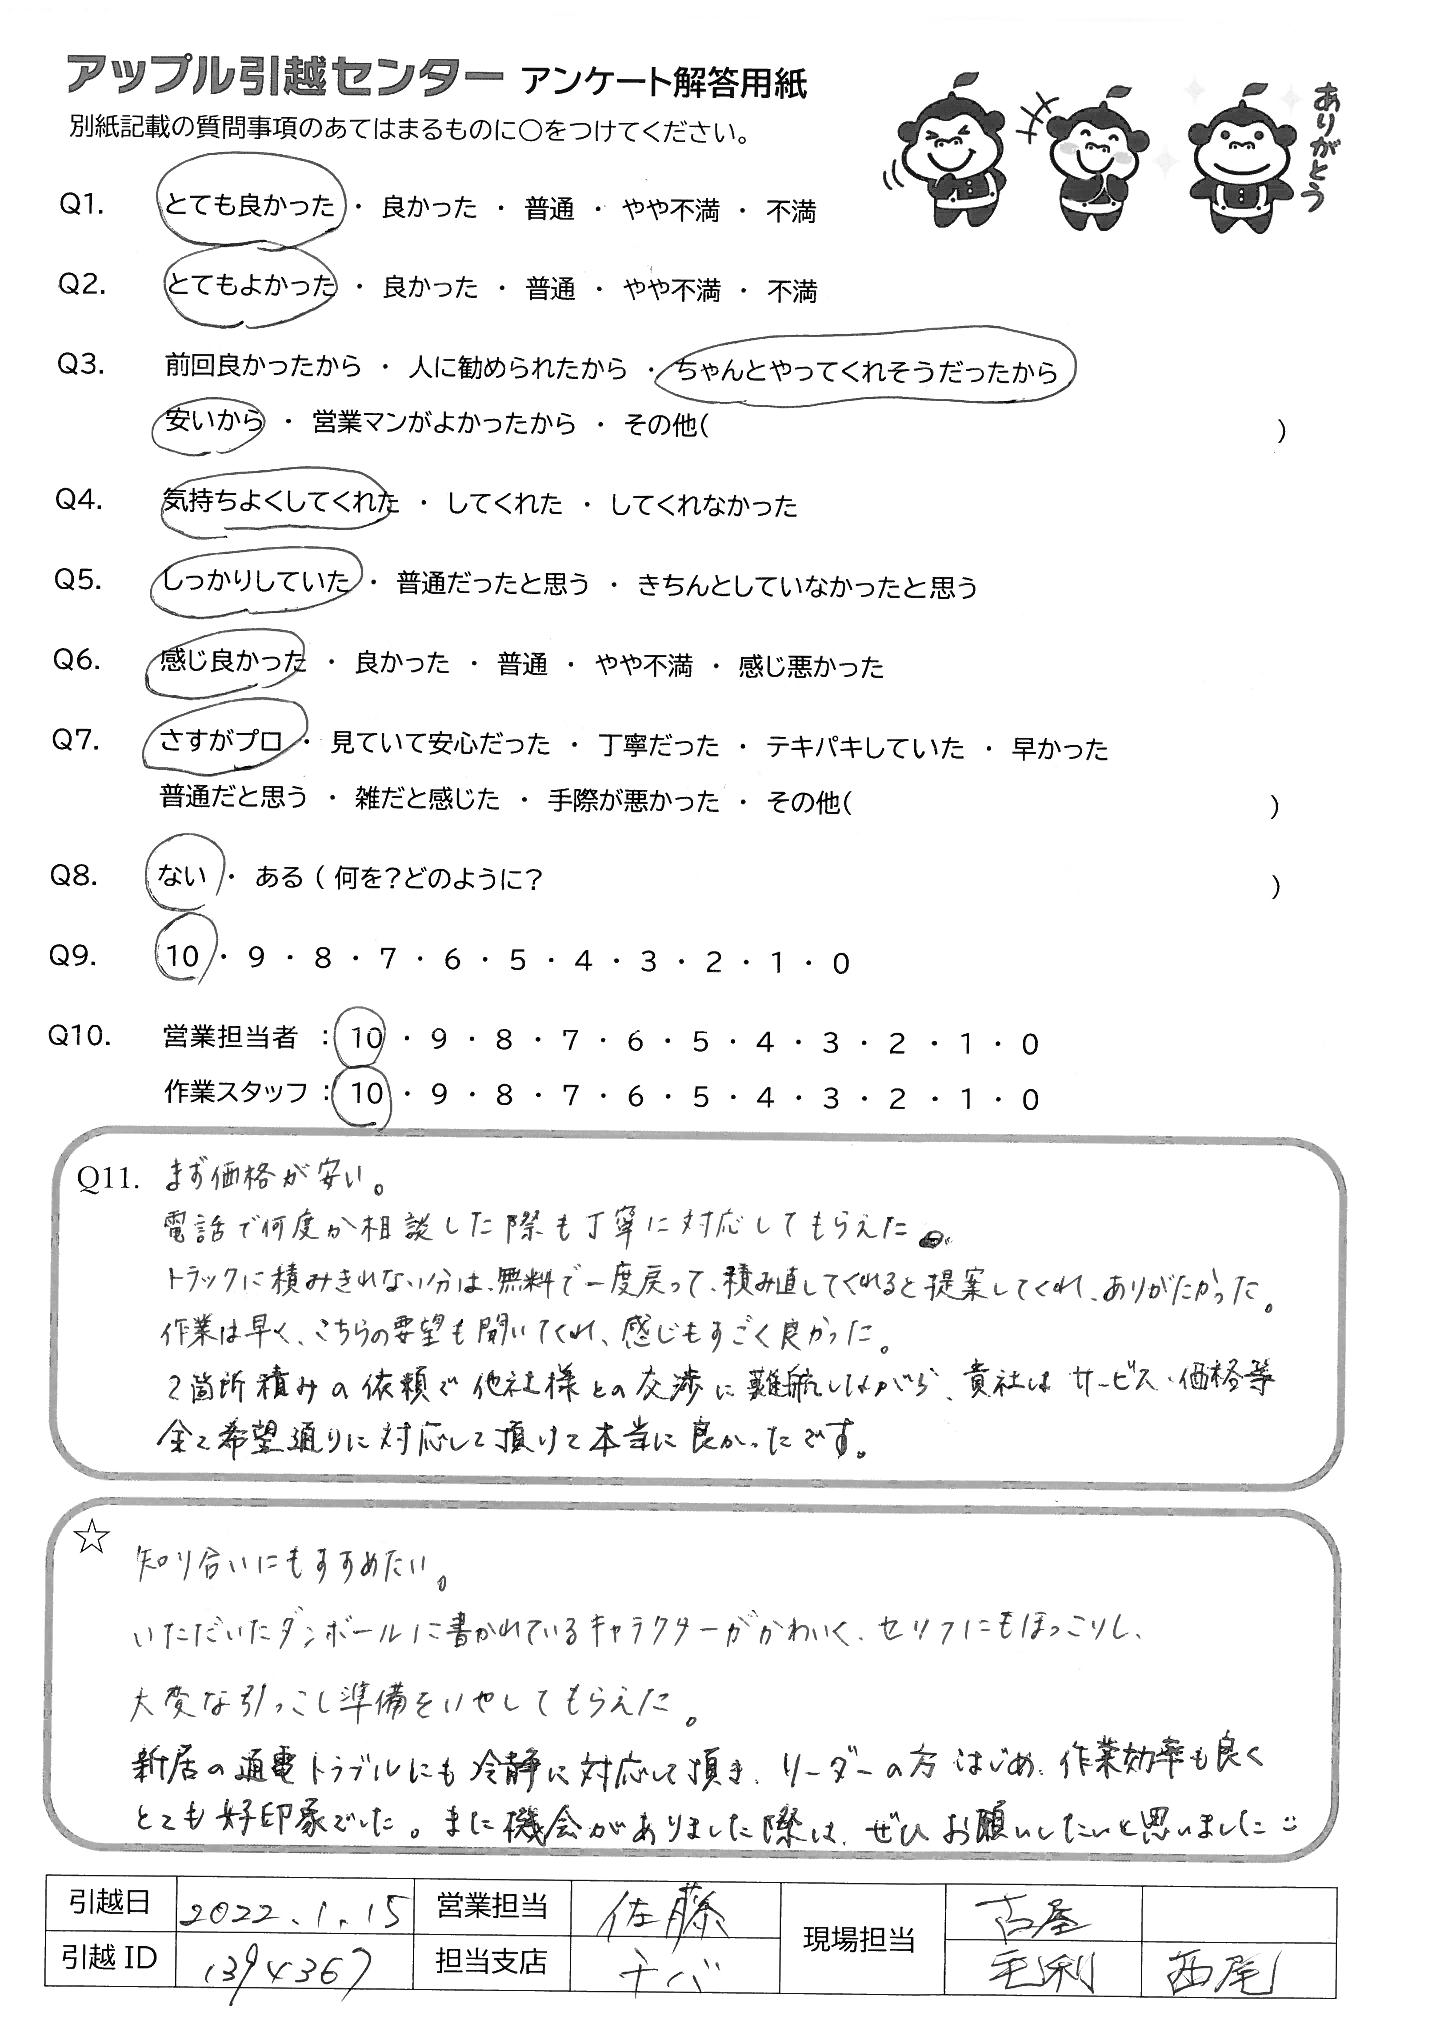 アップル引越センター アンケート解答用紙
ありがとう
別紙記載の質問事項のあてはまるものに○をつけてください。
Q1. とても良かった ・ 良かった ・ 普通 ・ やや不満 ・ 不満
Q2. とてもよかった ・ 良かった ・ 普通 ・ やや不満 ・ 不満
Q3. 前回良かったから ・ 人に勧められたから ・ ちゃんとやってくれそうだったから
安いから ・ 営業マンがよかったから ・ その他( )
Q4. 気持ちよくしてくれた ・ してくれた ・ してくれなかった
Q5. しっかりしていた ・ 普通だったと思う ・ きちんとしていなかったと思う
Q6. 感じ良かった ・ 良かった ・ 普通 ・ やや不満 ・ 感じ悪かった
Q7. さすがプロ ・ 見ていて安心だった ・ 丁寧だった ・ テキパキしていた ・ 早かった
普通だと思う ・ 雑だと感じた ・ 手際が悪かった ・ その他( )
Q8. ない ・ ある ( 何を？どのように？ )
Q9. 10 ・ 9 ・ 8 ・ 7 ・ 6 ・ 5 ・ 4 ・ 3 ・ 2 ・ 1 ・ 0
Q10. 営業担当者 : 10 ・ 9 ・ 8 ・ 7 ・ 6 ・ 5 ・ 4 ・ 3 ・ 2 ・ 1 ・ 0
作業スタッフ : 10 ・ 9 ・ 8 ・ 7 ・ 6 ・ 5 ・ 4 ・ 3 ・ 2 ・ 1 ・ 0
Q11. まず価格が安い。
電話で何度か相談した際も丁寧に対応してもらえた
トラックに積みきれない分は、無料で一度戻って、積み直してくれると提案してくれ、ありがたかった。
作業は早く、こちらの要望も聞いてくれ、感じもすごく良かった。
2箇所積みの依頼で他社様との交渉に難航しながら、貴社はサービス・価格等
全て希望通りに対応して頂けて本当に良かったです。
☆
知り合いにもすすめたい。
いただいたダンボールに書かれているキャラクターがかわいく、セリフにもほっこりし、
大変な引っこし準備をいやしてもらえた。
新居の通電トラブルにも冷静に対応して頂き、リーダーの方はじめ、作業効率も良く
とても好印象でした。また機会がありました際は、ぜひお願いしたいと思いました
引越日 2022.1.15 営業担当 佐藤 現場担当 古屋
引越ID 1394367 担当支店 千バ 毛利 西尾